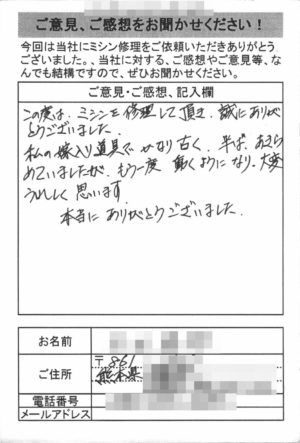 ご意見、ご感想をお聞かせください！
今回は当社にミシン修理をご依頼いただきありがとう
ございました。、当社に対する、ご感想やご意見等、な
んでも結構ですので、ぜひお聞かせください。
ご意見・ご感想、記入欄
この度は、ミシンを修理して頂き、誠にありがとうございました。
私の嫁入り道具で、かなり古く、半ば、あきら
めていましたが、もう一度 動くようになり、大変
うれしく思います
本当に ありがとうございました.
お名前
ご住所
〒861
熊本県
電話番号
メールアドレス